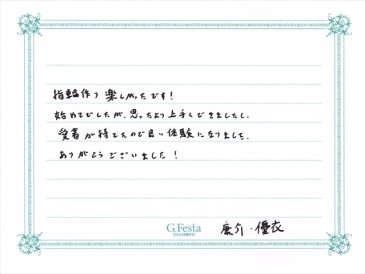 指輪作り楽しかったです!
始めてでしたが、思ったより上手くできましたし、
愛着が持てたので良い体験になりました。
ありがとうございました!
G.Festa
DIAMOND
康介・優衣